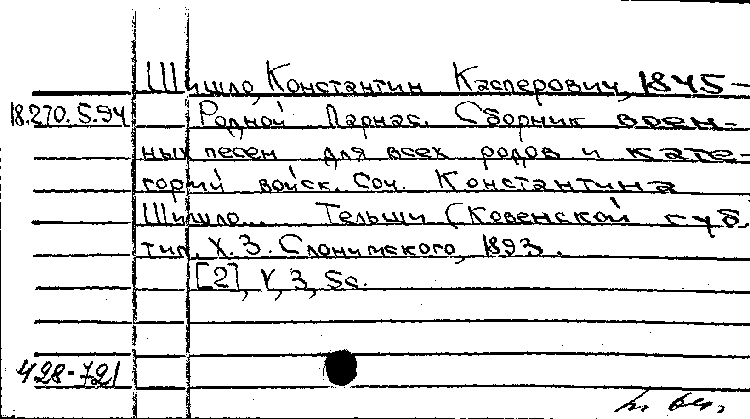 Шишло, Константин Касперович, 1845-
18.270.5.94
Родной Парнас. Сборник воен-
ных песен для всех родов и кате-
горий войск. Соч. Константина
Шишло... Тельши (Ковенской губ.
тип. Х. З. Слонимского, 1893.
[2], V, 3, 5с.
428-721